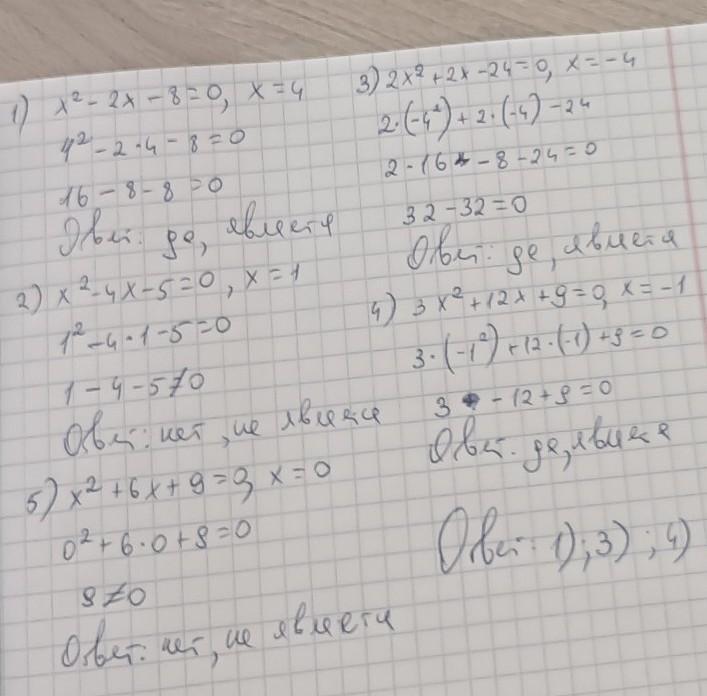 1) x² - 2x - 8 = 0, x = 4
4² - 2·4 - 8 = 0
16 - 8 - 8 = 0
Ответ: да, является
2) x² - 4x - 5 = 0, x = 1
1² - 4·1 - 5 = 0
1 - 4 - 5 ≠ 0
Ответ: нет, не является
5) x² + 6x + 9 = 0, x = 0
0² + 6·0 + 9 = 0
9 ≠ 0
Ответ: нет, не является
3) 2x² + 2x - 24 = 0, x = -4
2·(-4²) + 2·(-4) - 24
2·16 - 8 - 24 = 0
32 - 32 = 0
Ответ: да, является
4) 3x² + 12x + 9 = 0, x = -1
3·(-1²) + 12·(-1) + 9 = 0
3 - 12 + 9 = 0
Ответ: да, является
Ответ: 1); 3); 4)